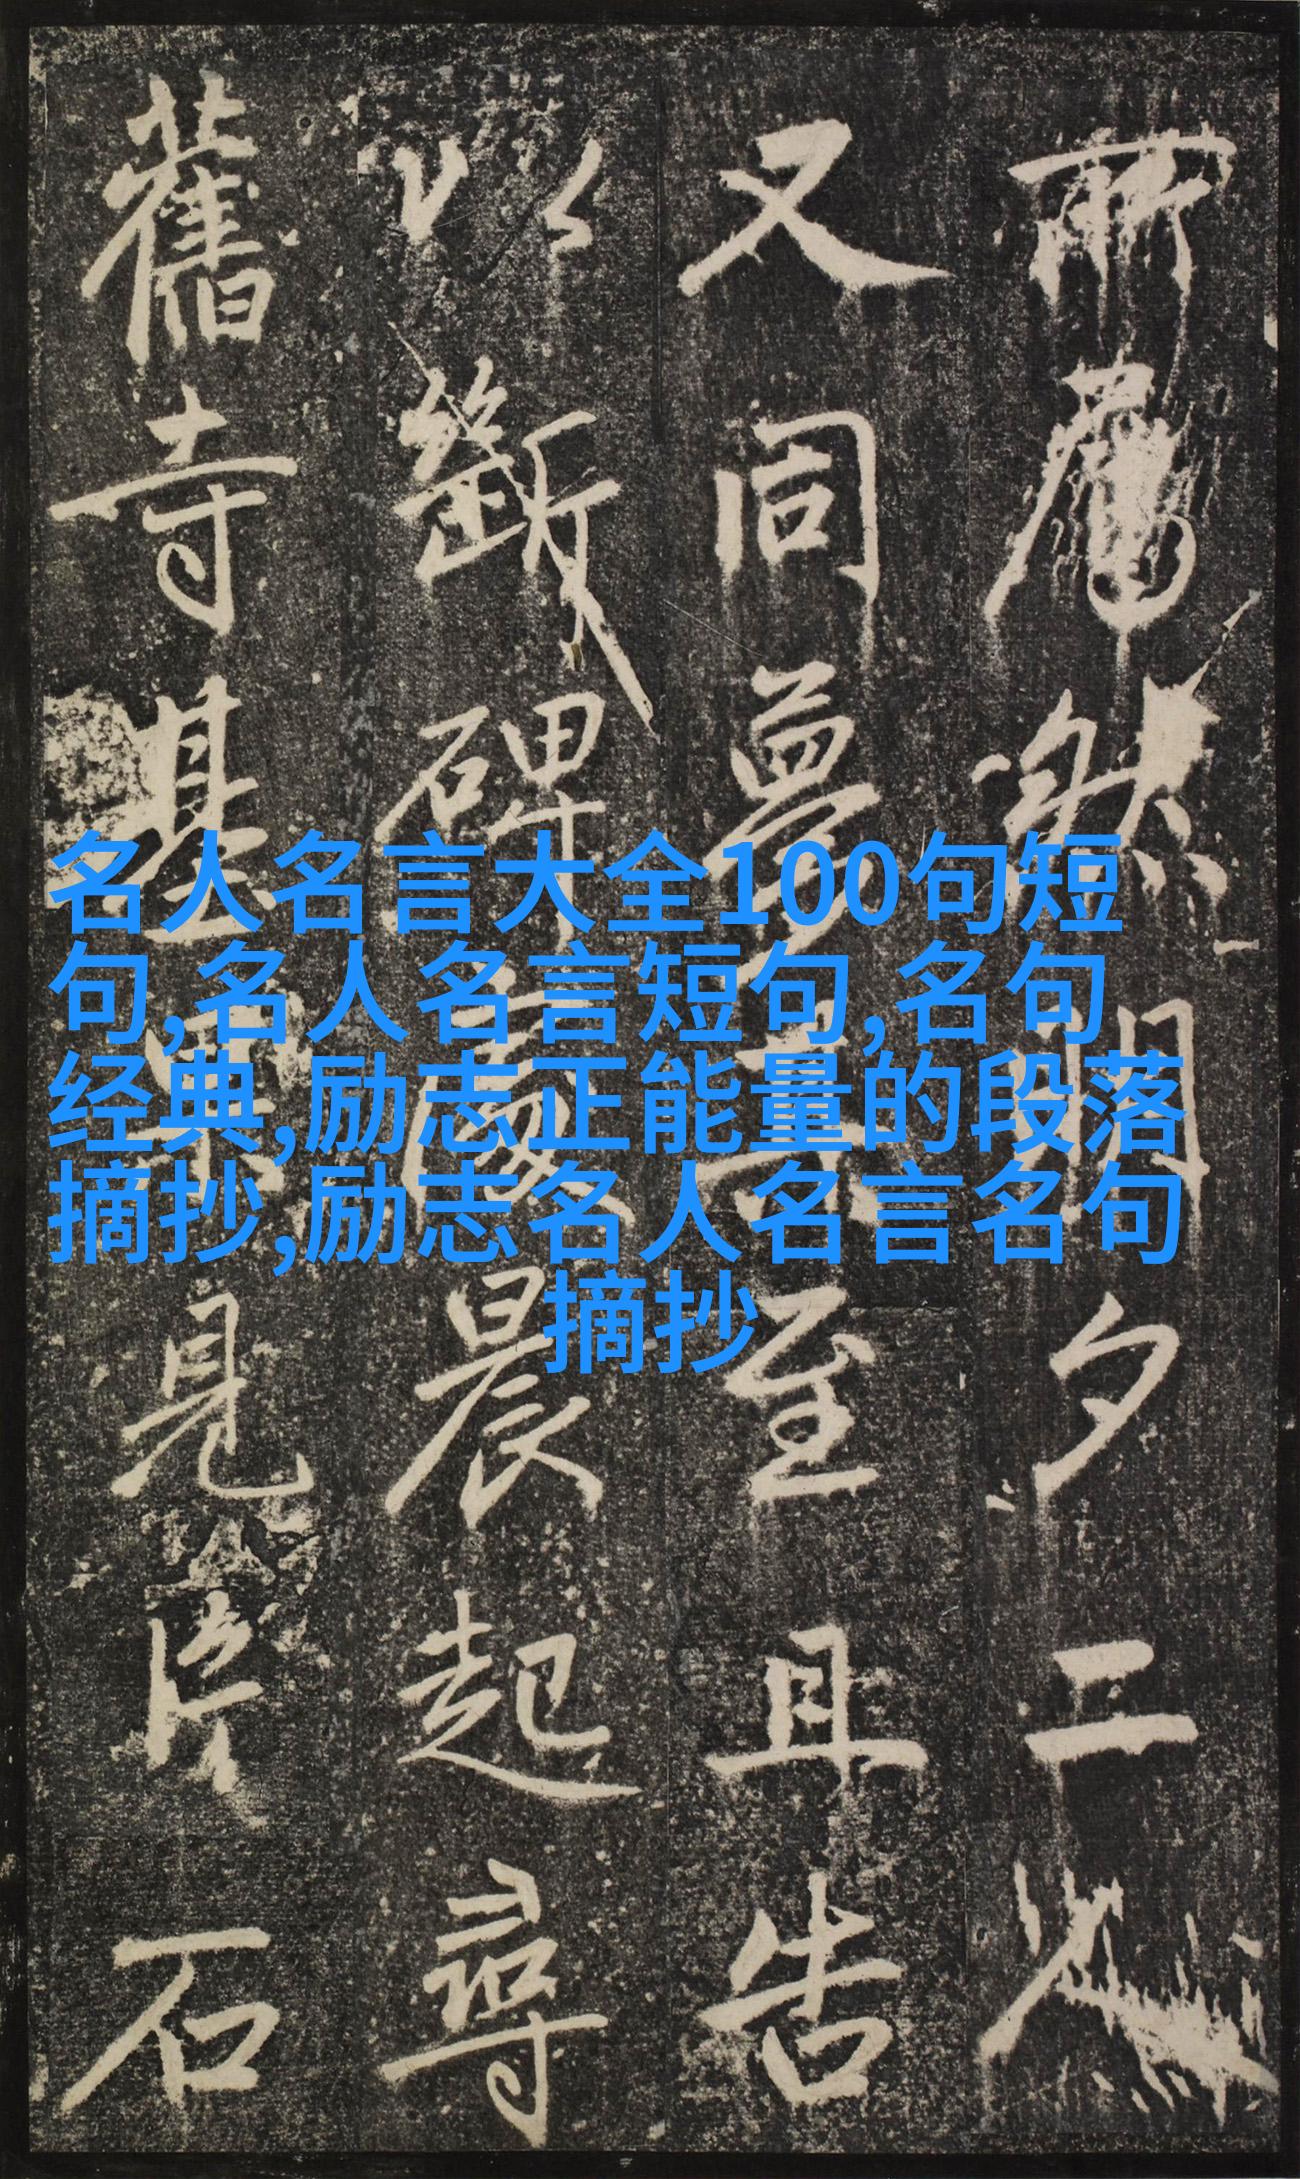 名人名言大全100句短
句,名人名言短句,名句
经典,励志正能量的段落
摘抄,励志名人名言名句
摘抄
然明夕二
又同夢至且告
以斷碑晨起尋
舊寺基果見片石